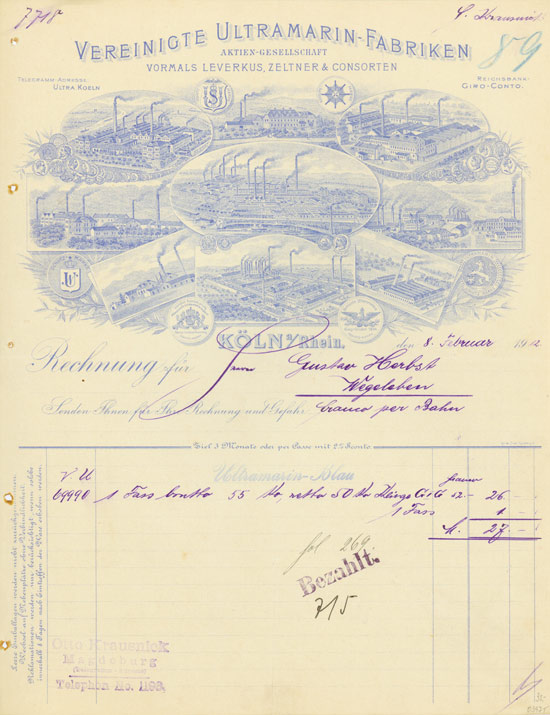 7718
O. Krausnick
89
VEREINIGTE ULTRAMARIN-FABRIKEN
AKTIEN-GESELLSCHAFT
VORMALS LEVERKUS, ZELTNER & CONSORTEN
TELEGRAMM-ADRESSE:
ULTRA KOELN
REICHSBANK-
GIRO-CONTO.
KÖLN a/Rhein,
den 8. Februar 19
Rechnung für Herrn Gustav Herbst
Wegeleben
Senden Ihnen für Ihre Rechnung und Gefahr franco per Bahn
Ziel 3 Monate oder per Casse mit 2% Sconto.
Ultramarin-Blau
VU
69990 1 Fass brutto 55 Ko netto 50 Ko 52.- 26 -
1 Fass 1 -
M. 27 -
fol 269
Bezahlt.
715
Leere Emballagen werden nicht zurückgenommen.
Wechsel auf Nebenplätze ohne Verbindlichkeit.
Reklamationen werden nur berücksichtigt, wenn solche
innerhalb 8 Tagen nach Eintreffen der Ware erhoben werden.
Otto Krausnick
Magdeburg
Telephon No. 1198.